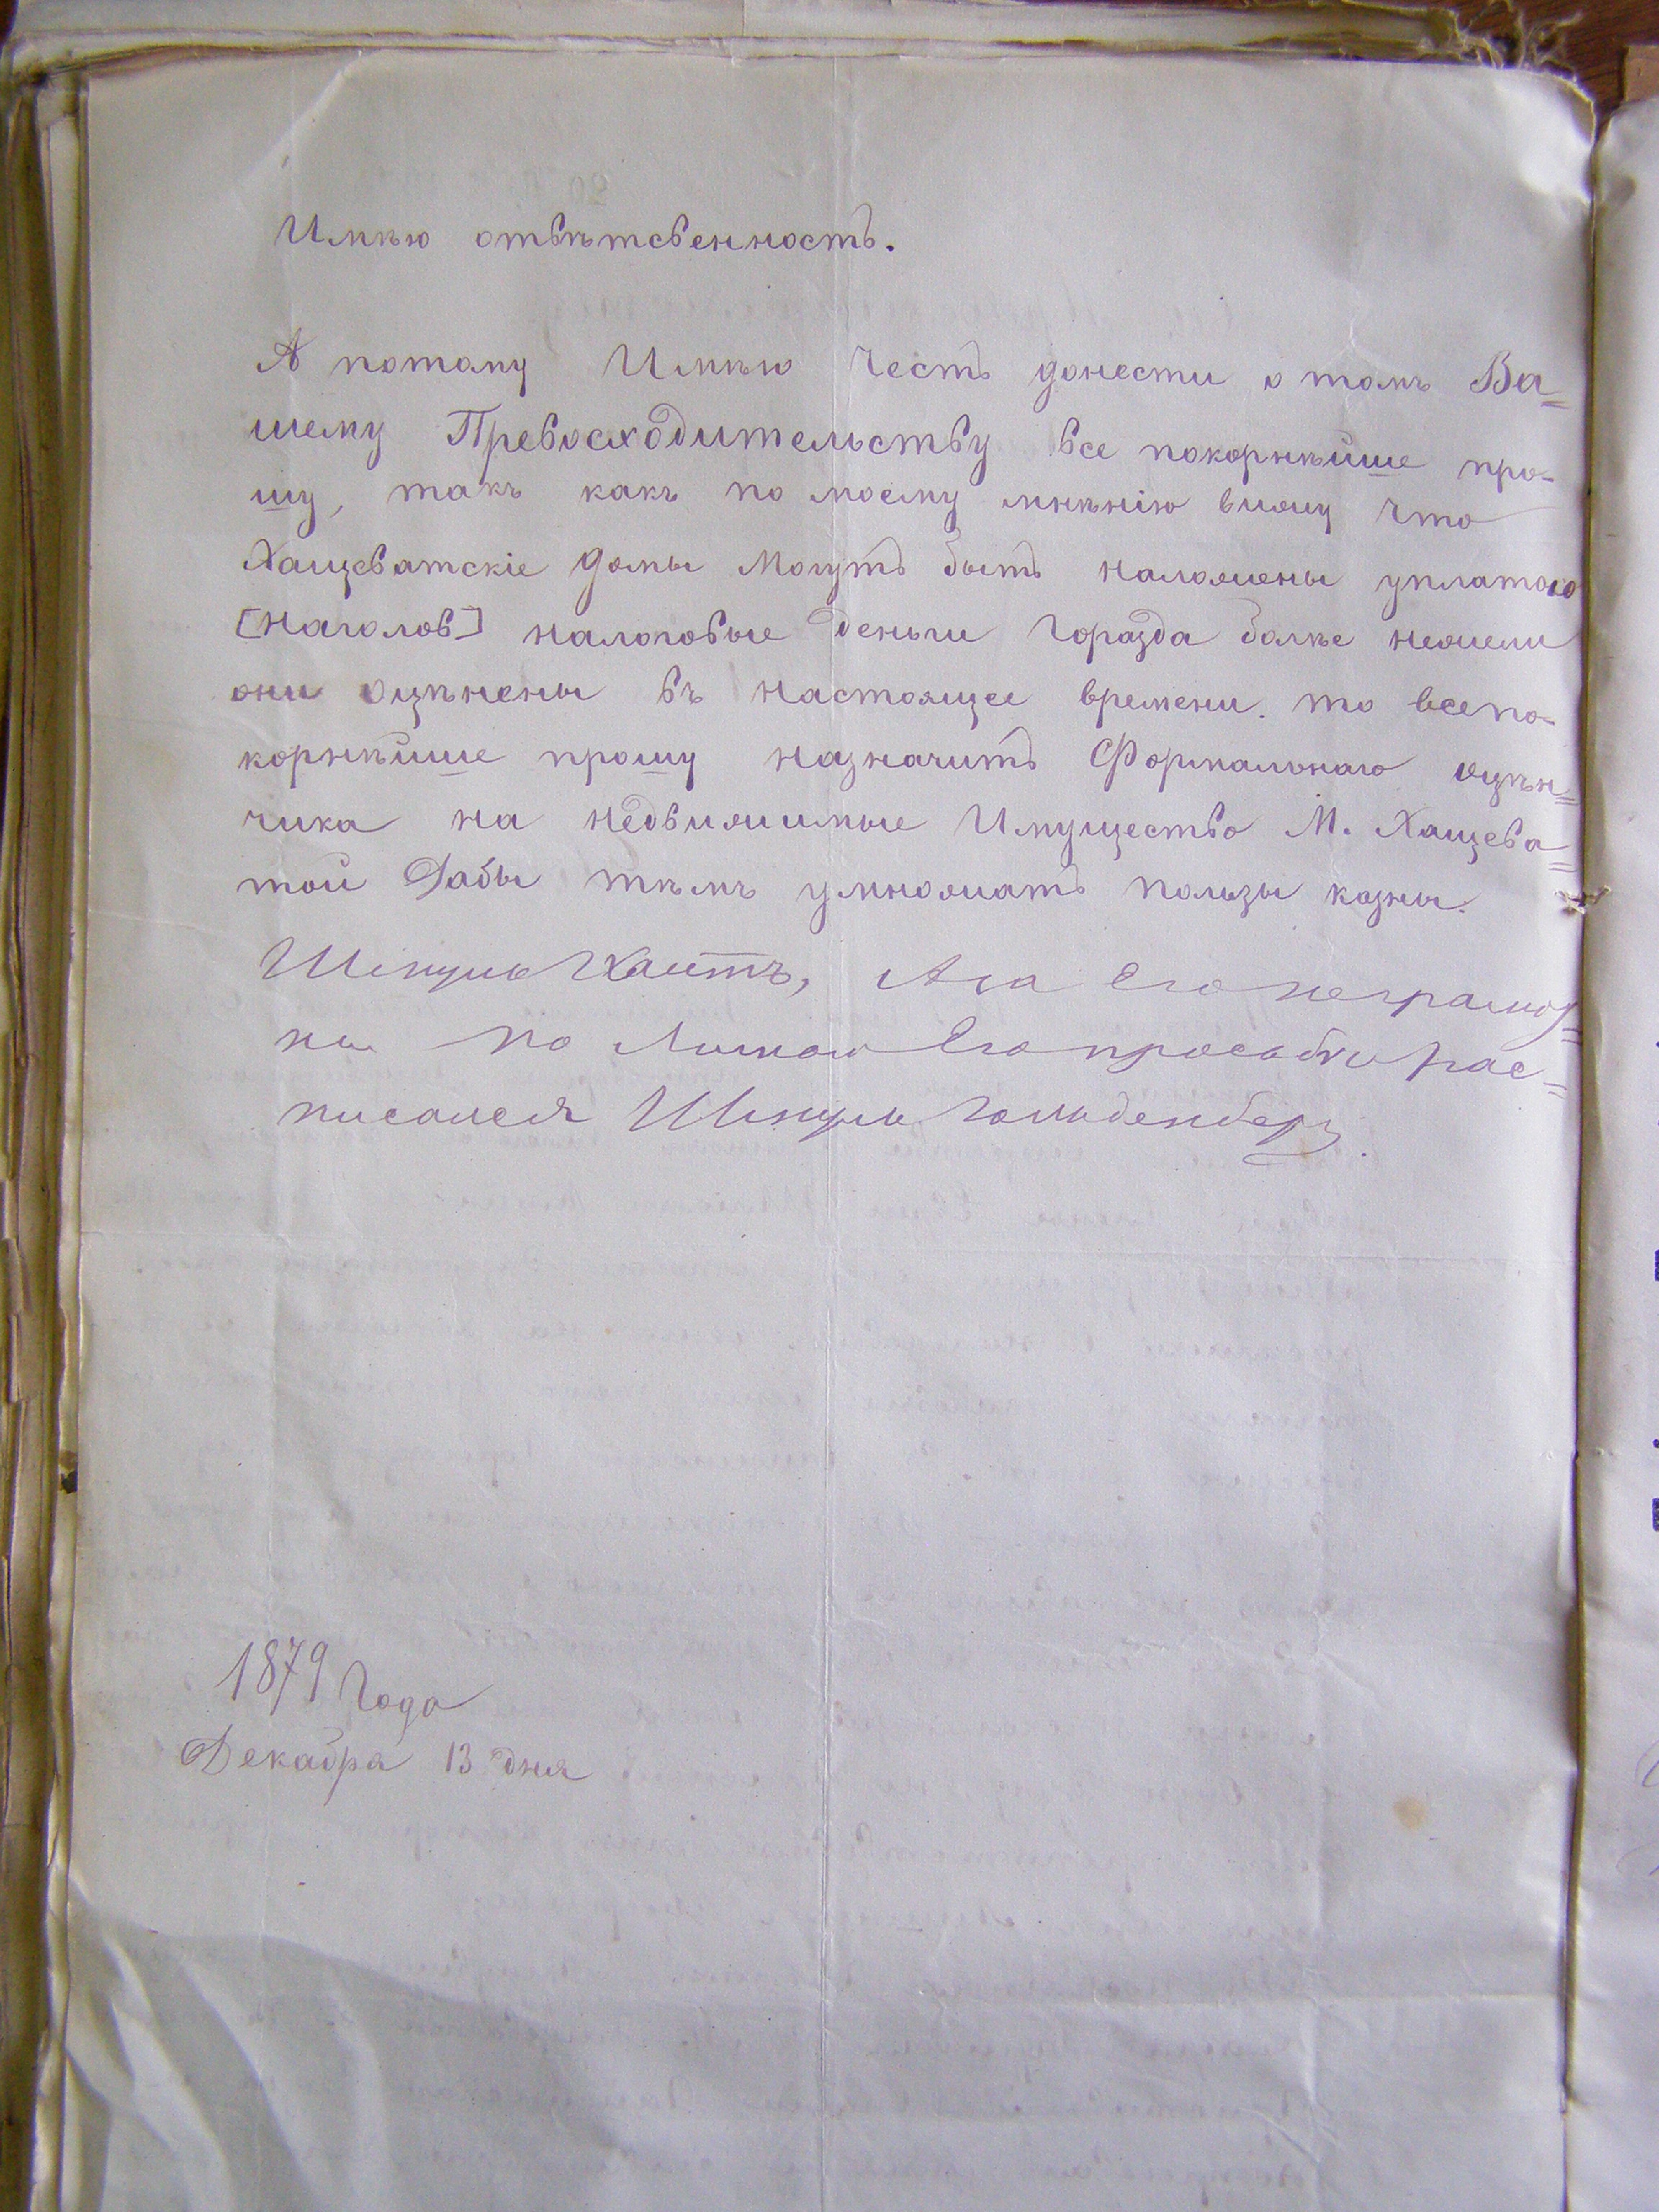 Имѣю отвѣтсвенность.
А потому Имѣю Честь донести о томъ Ва=
шему Превосходительству все покорнѣйше про-
шу, такъ какъ по моему мнѣнію вижу что
Хащеватскіе домы Могутъ быть наложены уплатою
[Наголов] налоговые деньги Горазда болѣе нежели
они оцѣнены въ настоящее времени. то всепо-
корнѣйше прошу назначить Формальнаго оцѣн=
чика на недвижимые Имущество М. Хащева=
той Дабы тѣмъ умножать пользы казны.
Шмуль Хаитъ, А за Его неграмот=
ны По Личной Его просьбѣ рас=
писался Шмуль Гольденберг.
1879 Года
Декабра 13 дня